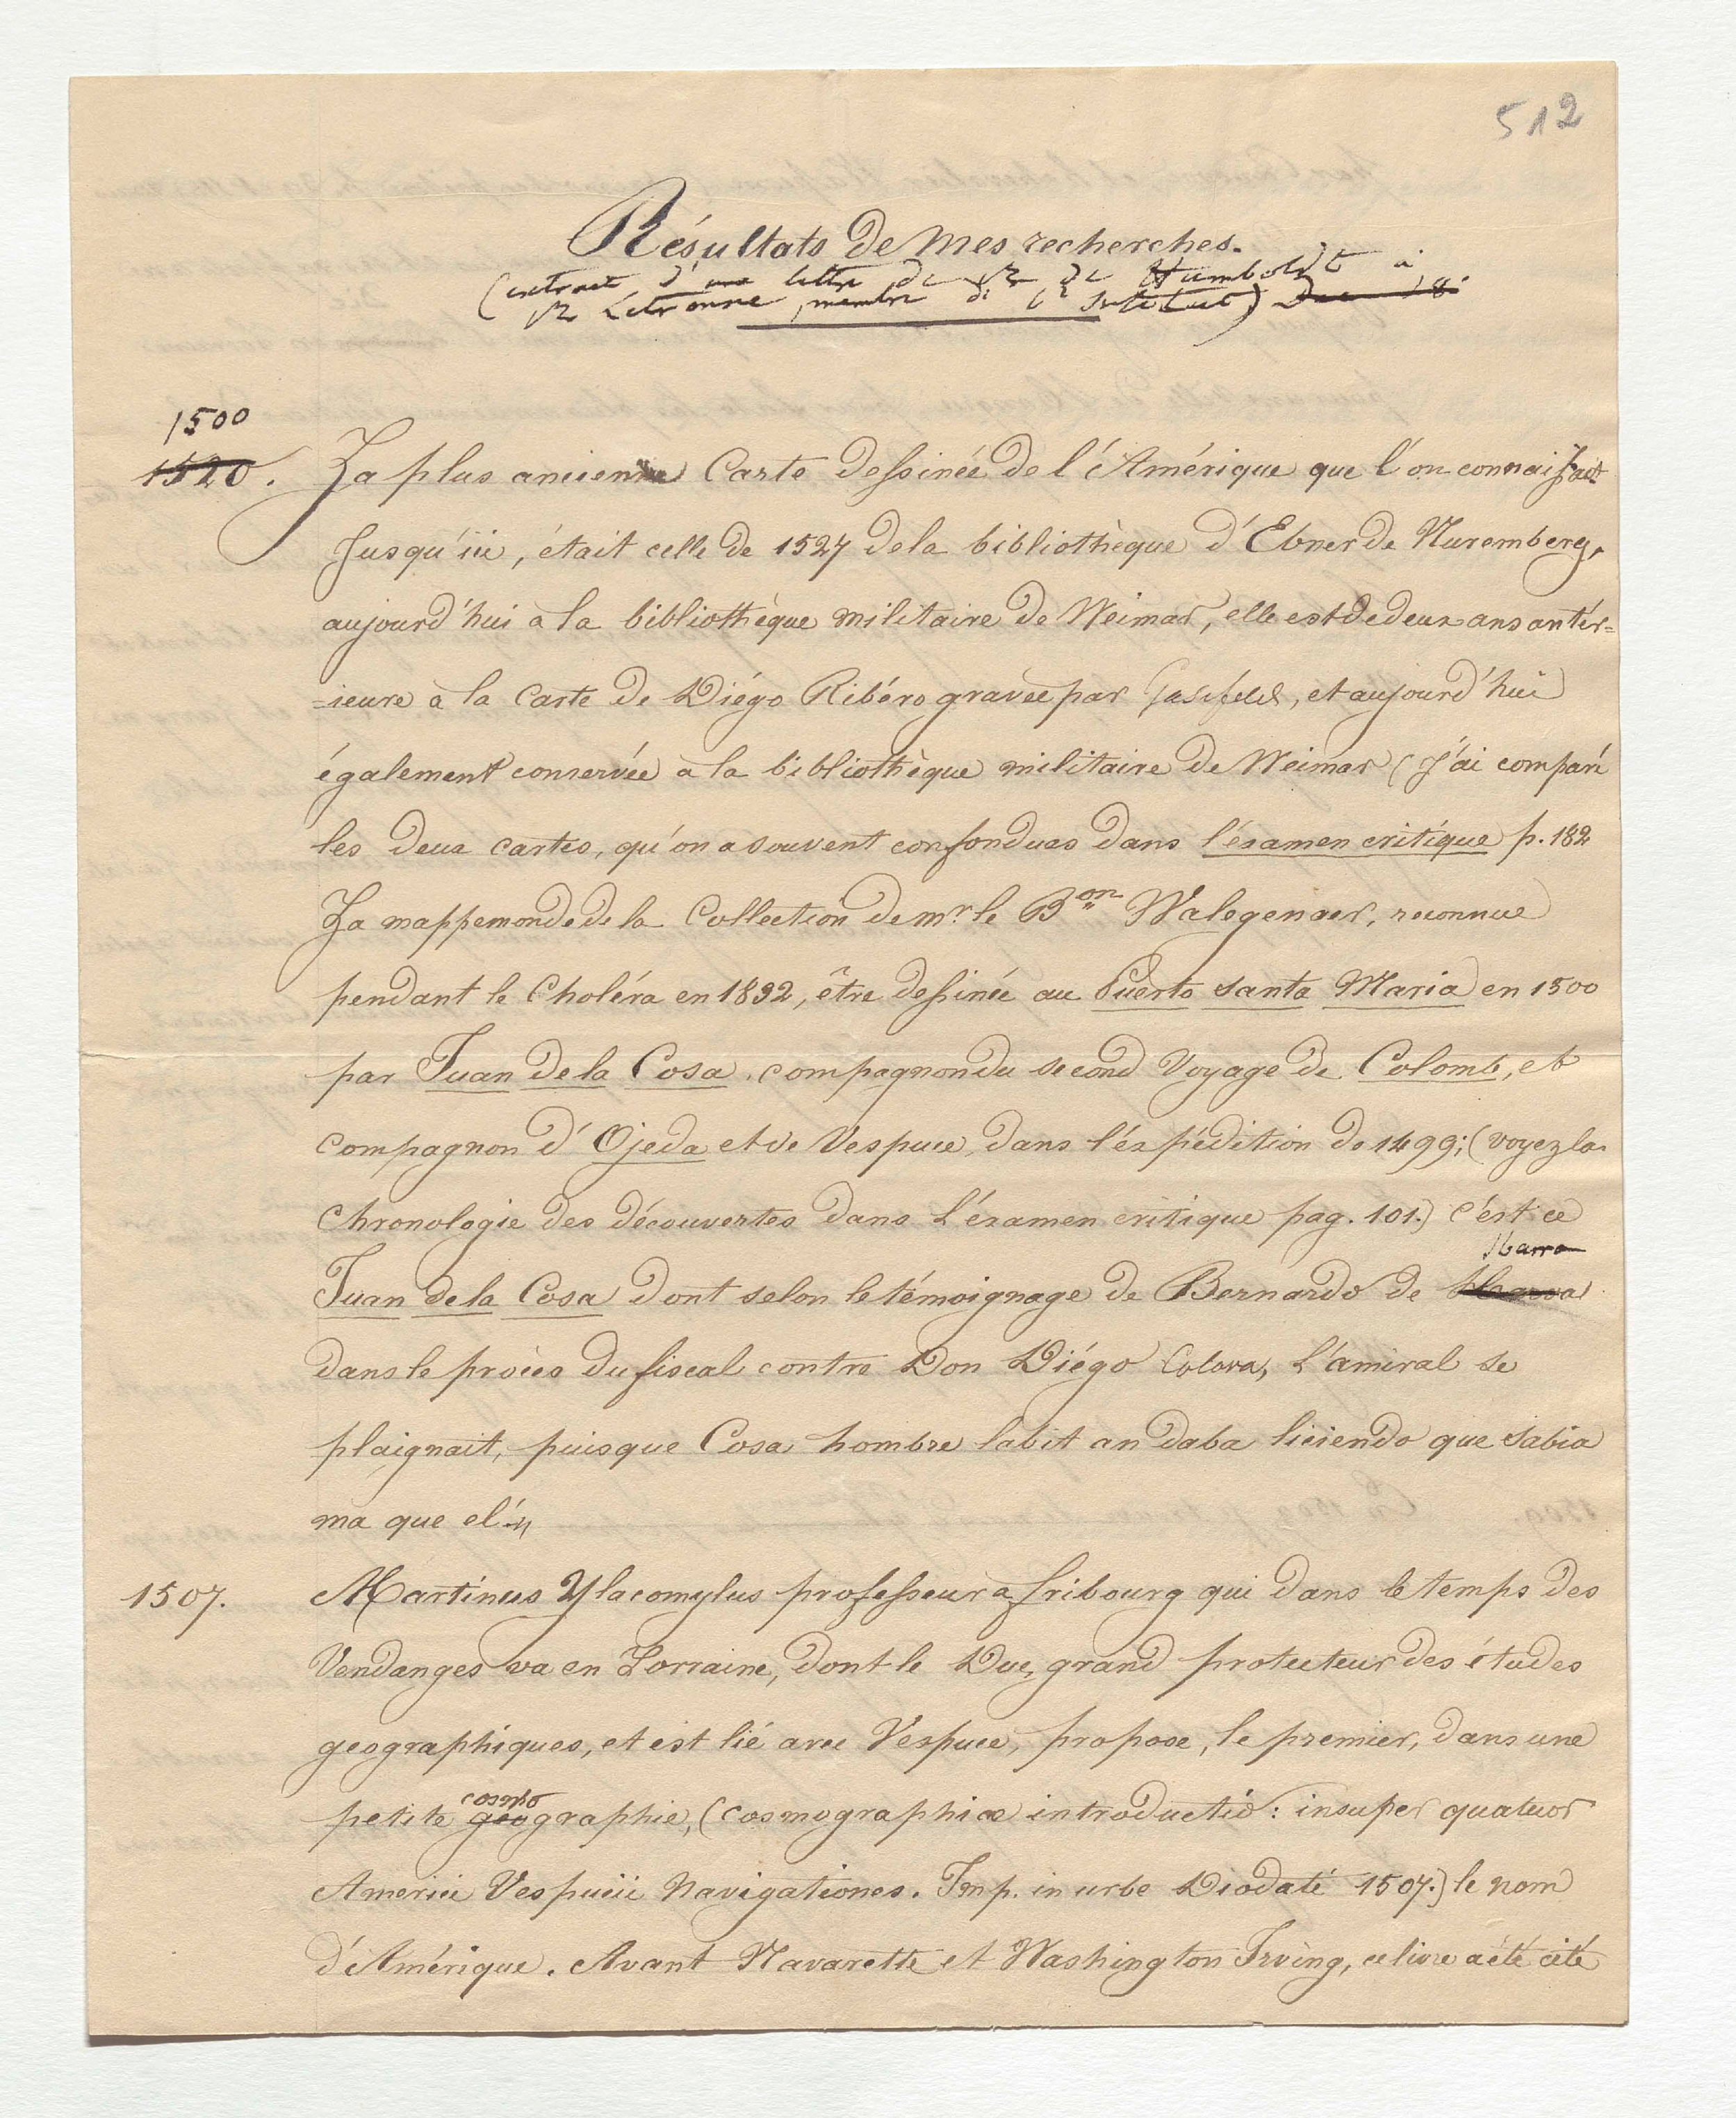 512
Résultats de mes recherches.
(extrait d'une lettre de Mr de Humboldt à
Mr Letronne, membre de l'Institut)
1500
1520. La plus ancienne Carte dessinée de l'Amérique que l'on connaissait
Jusqu'ici, était celle de 1527 de la bibliothèque d'Ebner de Nuremberg,
aujourd'hui à la bibliothèque militaire de Weimar, elle est de deux ans antér=
=ieure à la Carte de Diégo Ribéro gravée par , et aujourd'hui
également conservée à la bibliothèque militaire de Weimar (J'ai comparé
les deux cartes, qu'on a souvent confondues dans l'éxamen critique p. 182
La mappemonde de la Collection de mr. le Bon Walegenaer, reconnue
pendant le Choléra en 1832, être dessinée au Puerto santa Maria en 1500
par Juan de la Cosa, compagnon du second Voyage de Colomb, et
compagnon d'Ojeda et de Vespuce, dans l'éxpédition de 1499; (voyez la
Chronologie des découvertes dans l'éxamen critique pag. 101.) c'est ce
Ibarra
Juan de la Cosa dont selon le témoignage de Bernardo de
dans le procès du fiscal contre Don Diégo Colova, l'amiral se
plaignait, puisque Cosa hombre labit andaba liciendo que sabia
ma que el"
1507. Martinus Ylacomylus professeur a fribourg qui dans le temps des
Vendanges va en Lorraine, dont le Duc, grand protecteur des études
geographiques, et est lié avec Vespuce, propose, le premier, dans une
cosmo
petite géographie, (cosmographiæ introductio: insuper quatuor
Americi Vespucii Navigationes. Imp. in urbe Diodaté 1507.) le nom
d'Amérique. Avant Navarette et Washington Irving, ce livre a été cité